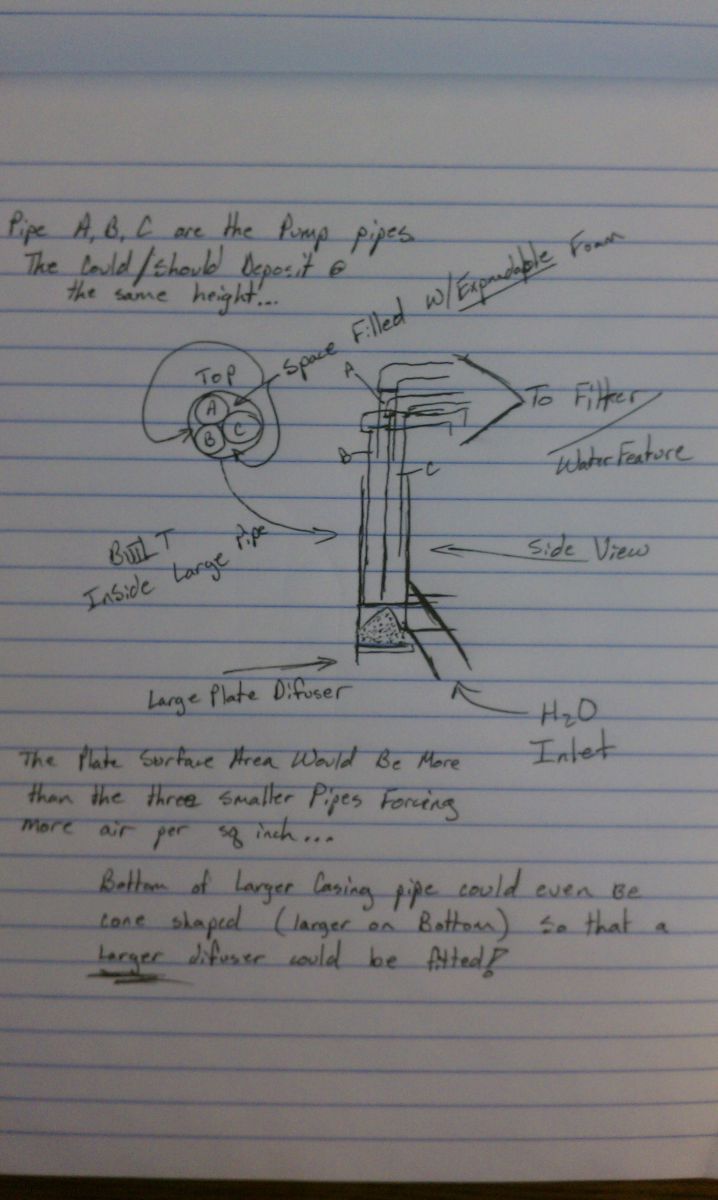 Pipe A, B, C are the Pump pipes
The Could/Should Deposit @
the same height...
Space Filled W/ Expandable Foam
TOP
A
B
C
A
B
C
To Filter
Water Feature
Built
Inside Large Pipe
Side View
Large Plate Difuser
H2O
Inlet
The Plate Surface Area Would Be More
than the three smaller Pipes Forcing
more air per sq inch...
Bottom of Larger Casing pipe could even Be
cone shaped (larger on Bottom) so that a
Larger difuser could be fitted!